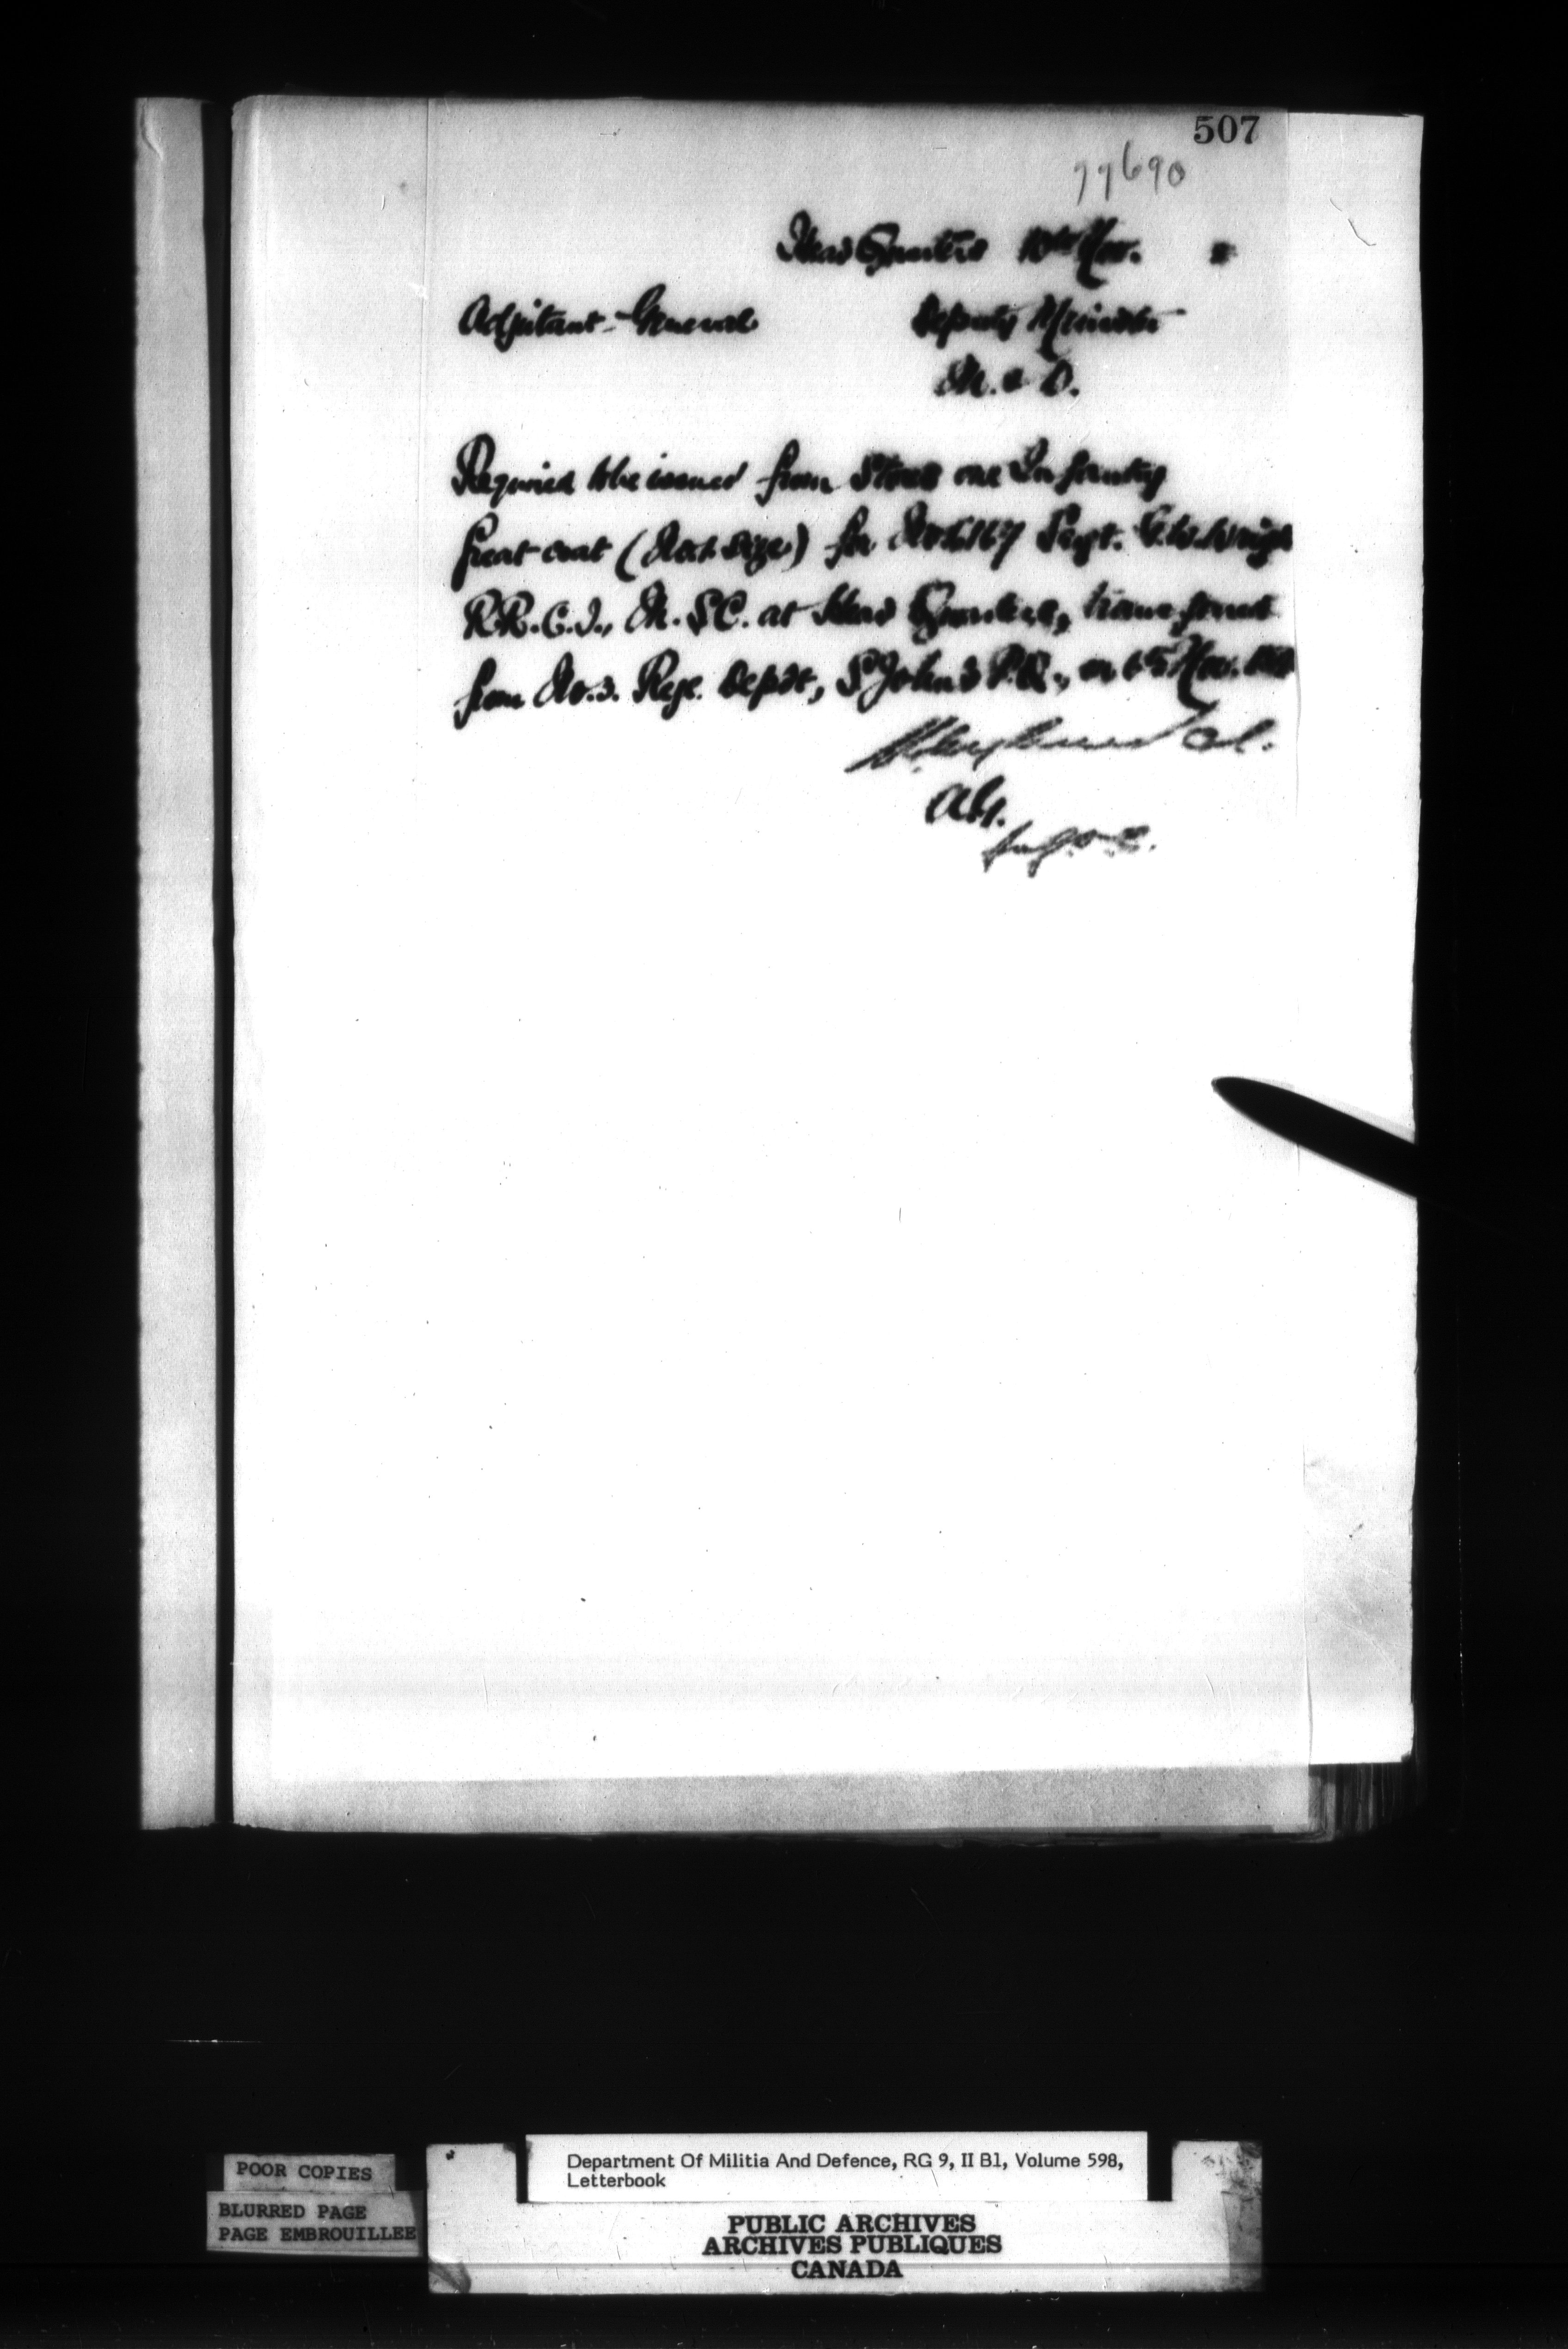 507
77690
Head Quarters 10th Nov.
Adjutant-General Deputy Minister
M. & D.
Required to be issued from Stores one Infantry
great coat (No 1. size) for Sergt. G.W. Wright
R.R.C.I., M.S.C. at Head Quarters, transferred
from No. 3. Regt. Depôt, St Johns P.Q., on 6th Nov.
Col.
A.G.
POOR COPIES
BLURRED PAGE
PAGE EMBROUILLEE
Department Of Militia And Defence, RG 9, II B1, Volume 598,
Letterbook
PUBLIC ARCHIVES
ARCHIVES PUBLIQUES
CANADA